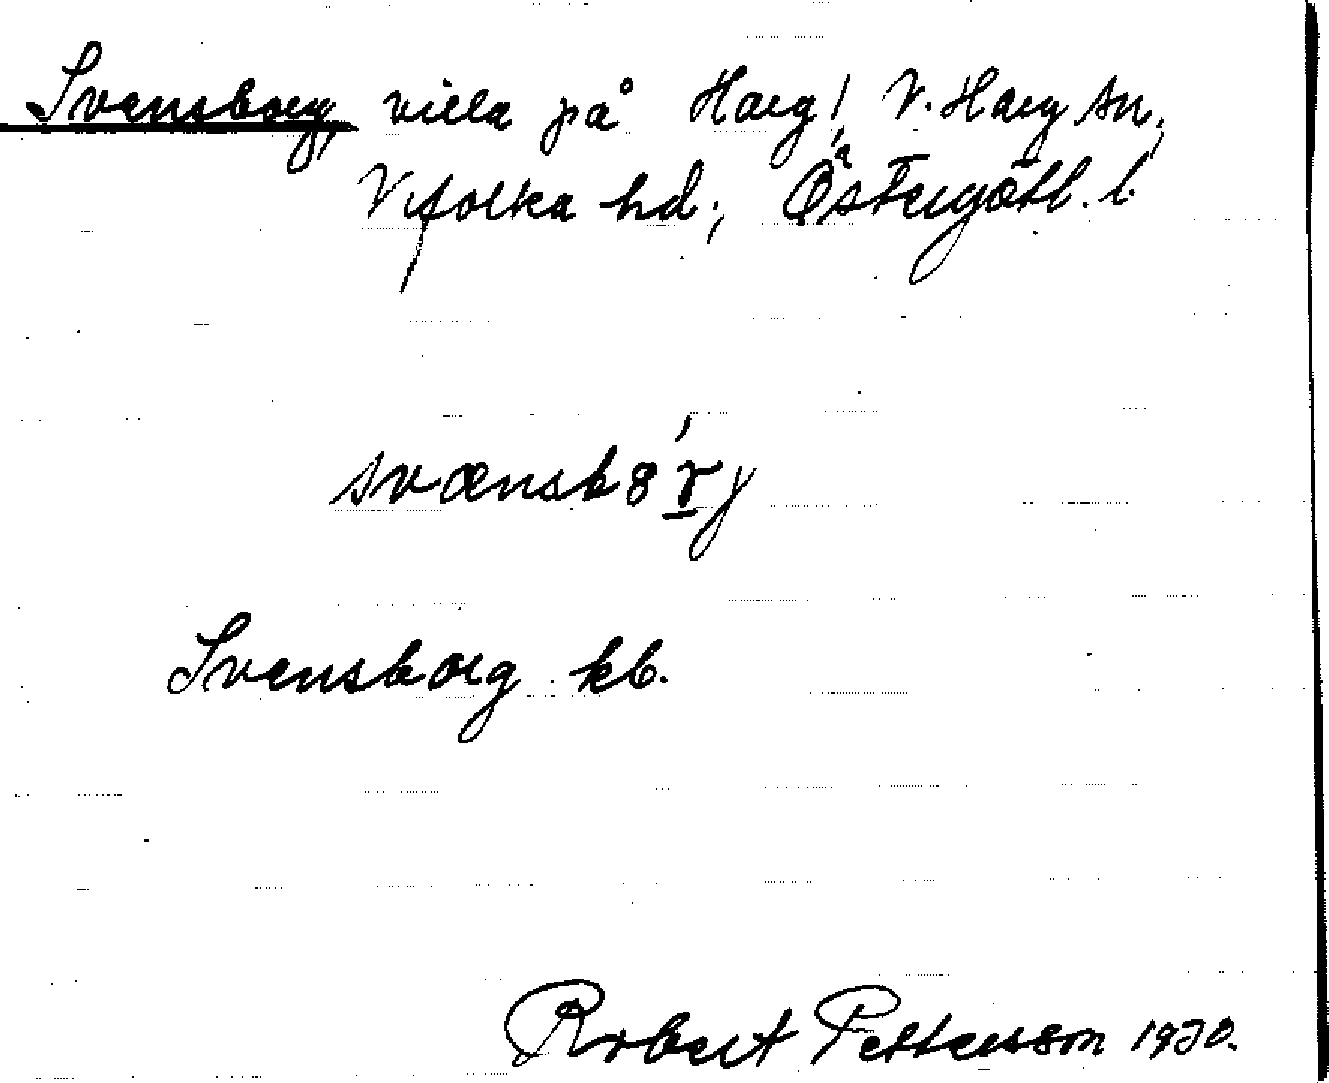 Svensborg, villa på Harg! V. Harg sn,
Vifolka hd; Östergötl. l.
svænsb8ŕ̲j
Svensborg kb.
Robert Petterson 1930.